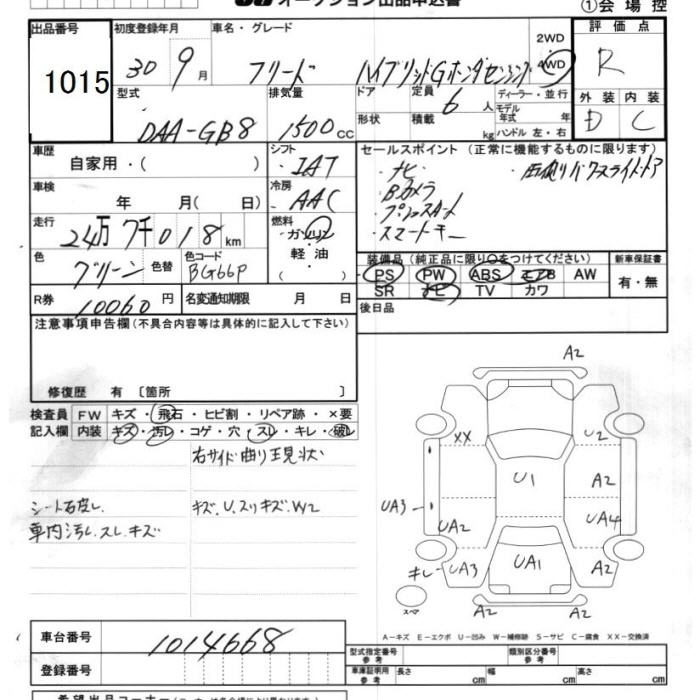 オークション出品申込書
①会場控
出品番号 初度登録年月 車名・グレード 2WD 評価点
1015 30 9月 フリード ハイブリッドGホンダセンシング 4WD R
型式 排気量 ドア 定員 6人 ディーラー・並行 外装 内装
DAA-GB8 1500cc 形状 積載 kg モデル年式 年 ハンドル 左・右 D C
車歴 シフト セールスポイント (正常に機能するものに限ります)
自家用・( ) IAT ・ナビ
車検 冷房 ・Bカメラ
年 月( 日) AAC ・プッシュスタート
走行 燃料 ・スマートキー
24万7千018km ガソリン
色 色替 色コード 軽油
グリーン BG66P ・( )
装備品 (純正品に限り○をつけてください) 新車保証書
PS PW ABS エアB AW 有・無
SR ナビ TV カワ
R券 10060円 名変通知期限 月 日 後日品
注意事項申告欄(不具合内容等は具体的に記入して下さい)
修復歴 有 〔箇所 〕
検査員 FW キズ・飛石・ヒビ割・リペア跡・×要
記入欄 内装 キズ・汚レ・コゲ・穴・スレ・キレ・破レ
右サイド曲り現状
シート破レ キズ、U、スリキズ、W2
車内汚レ、スレ、キズ
A2
XX U2
U1 A2
UA3 UA2 UA4
キレ UA3 UA1 A2
スペア A2 A2
A-キズ E-エクボ U-凹み W-補修跡 S-サビ C-腐食 XX-交換済
車台番号 1014668
登録番号
型式指定番号 参考 類別区分番号 参考
車庫証明用 参考 長さ cm 幅 cm 高さ cm
希望出品コーナー